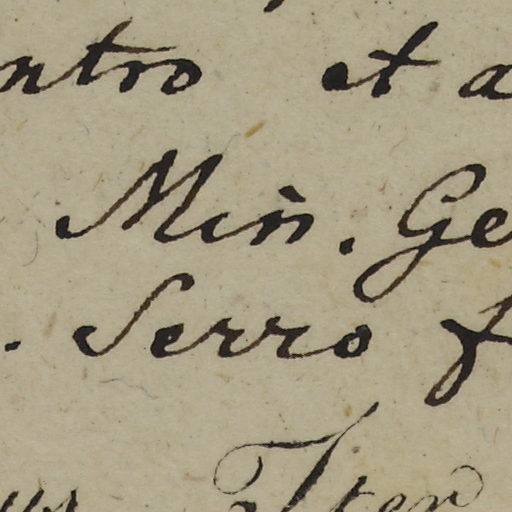 ntro et a
Min. Ge
. Serro f
us Iter